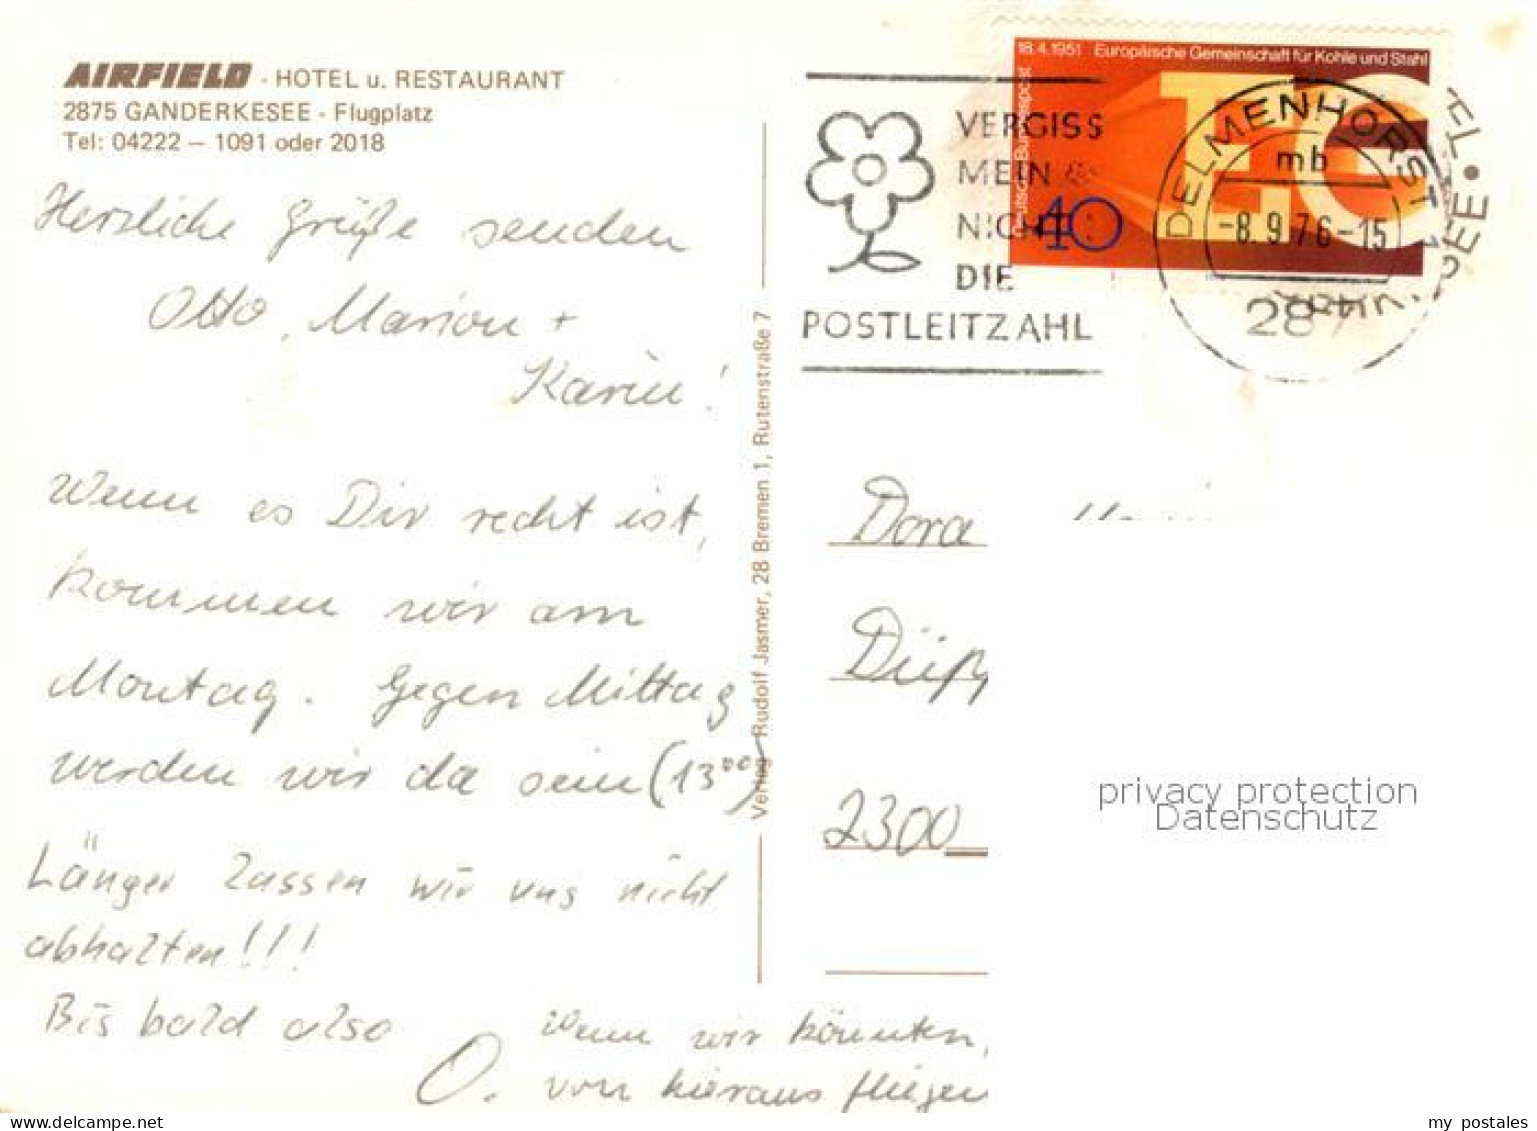 AIRFIELD - HOTEL u. RESTAURANT
2875 GANDERKESEE - Flugplatz
Tel: 04222 – 1091 oder 2018
Herzliche Grüße senden
Otto, Marion +
Karin!
Wenn es Dir recht ist,
kommen wir am
Montag. Gegen Mittag
werden wir da sein (13⁰⁰)
Länger lassen wir uns nicht
abhalten!!!
Bis bald also
O.
Wenn wir könnten,
von hieraus fliegen
Verlag Rudolf Jasmer, 28 Bremen 1, Rutenstraße 7
VERGISS
MEIN
NICHT
DIE
POSTLEITZAHL
18.4.1951 Europäische Gemeinschaft für Kohle und Stahl
Deutsche Bundespost
EG
40
DELMENHORST 1
mb
-8.9.76-15
287
Dora
2300
privacy protection
Datenschutz
my postales